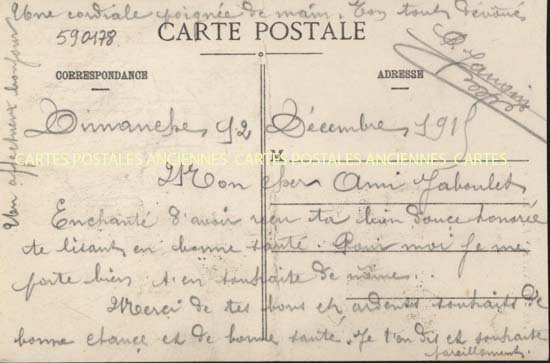 Une cordiale poignée de main. Ton tout dévoué
590178.
CARTE POSTALE
CORRESPONDANCE
ADRESSE
Un affectueux bonjour
Dimanche 12 Décembre 1915
CARTES POSTALES ANCIENNES CARTES POSTALES ANCIENNES CARTES
M
Mon cher Ami Jaboulet
Enchanté d'avoir reçu ta bien douce honorée
te lisant en bonne santé. Pour moi je me
porte bien t'en souhaite de même.
Merci de tes bons et ardents souhaits de
bonne chance et de bonne santé. Je t'en dis et souhaite
pareillement.